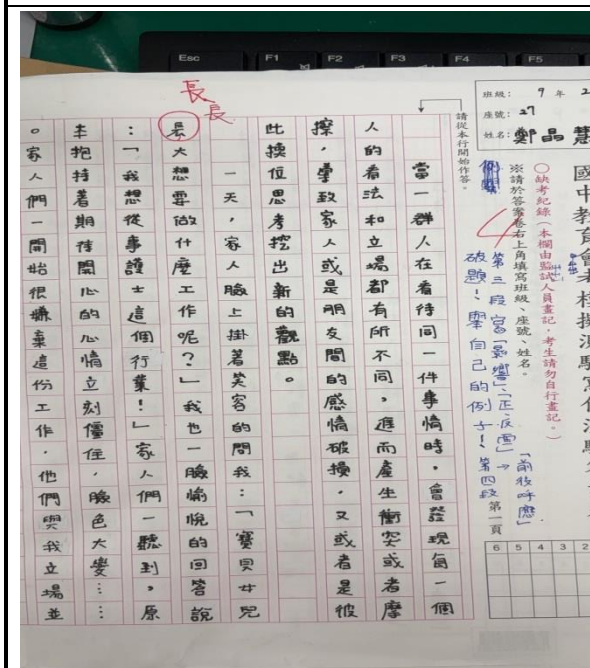 Esc F1 F2 F3 F4 F5
班級：9年2
座號：27
姓名：鄭晶慧
國中教育會考模擬測驗寫作測驗
○缺考紀錄(本欄由監試人員畫記，考生請勿自行畫記。)
※請於答案卷右上角填寫班級、座號、姓名。
4
第三段寫「影響」「正、反面」→「前後呼應」
破題！舉自己的例子！第四段
第一頁
2
3
4
5
6
請從本行開始作答。
當一群人在看待同一件事情時，會發現每一個
人的看法和立場都有所不同，進而產生衝突或者摩
擦，導致家人或是朋友間的感情破損，又或者是彼
此換位思考挖出新的觀點。
一天，家人臉上掛著笑容的問我：「寶貝女兒
長大想要做什麼工作呢？」我也一臉愉悅的回答說
：「我想從事護士這個行業！」家人們一聽到，原
本抱持著期待開心的心情立刻僵住，臉色大變……
。家人們一開始很嫌棄這份工作，他們與我立場並
長
長